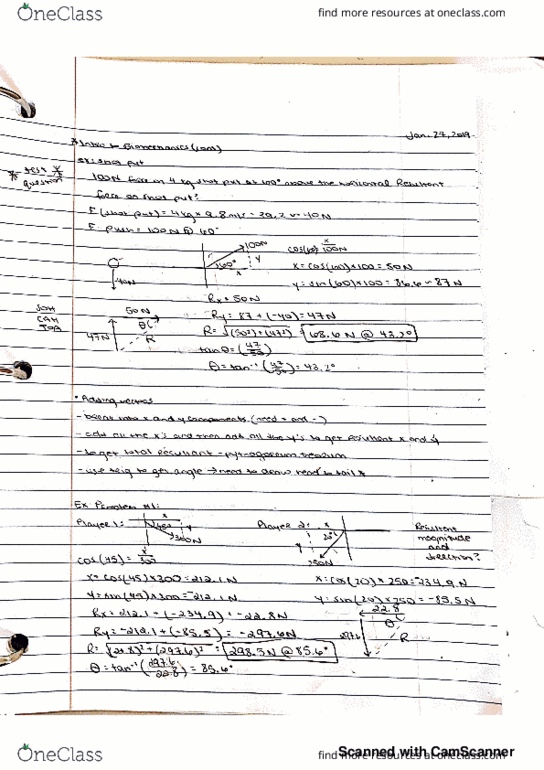 OneClass
find more resources at oneclass.com
Jan. 24, 2019
* Intro to Biomechanics (cont)
Ex: shot put
* test *
question
100N force on 4 kg shot put at 60° above the horizontal Resultant
force on shot put?
F (shot put) = 4kg x 9.8m/s = 39.2 ~ 40N
F push = 100N @ 60°
100N
60°
x
y
40N
cos(60) x/100N
x = cos(60) x 100 = 50N
y = sin(60) x 100 = 86.6 ~ 87N
Rx = 50N
Ry = 87 + (-40) = 47N
R = √(50²) + (47²) = 68.6N @ 43.2°
tanθ = (47/50)
θ = tan⁻¹ (47/50) = 43.2°
SOH
CAH
TOA
50N
θ
47N
R
• Adding vectors
- break into x and y components (need + and -)
- add all the x's and then add all the y's to get resultant x and y
- to get total resultant - pythagorean theorem
- use trig to get angle → need to draw head to tail *
Ex Problem #1:
Player 1:
x
45°
y
300N
Player 2:
x
20°
y
250N
Resultant
magnitude
and
direction?
cos(45) = x/300
x = cos(45) x 300 = 212.1N
y = sin(45) x 300 = -212.1N
x = cos(20) x 250 = -234.9N
y = sin(20) x 250 = -85.5N
Rx = 212.1 + (-234.9) = -22.8N
Ry = -212.1 + (-85.5) = -297.6N
R = √(22.8)² + (297.6)² = 298.5N @ 85.6°
θ = tan⁻¹ (297.6/22.8) = 85.6°
22.8
θ
R
OneClass
find more resources at oneclass.com
Scanned with CamScanner